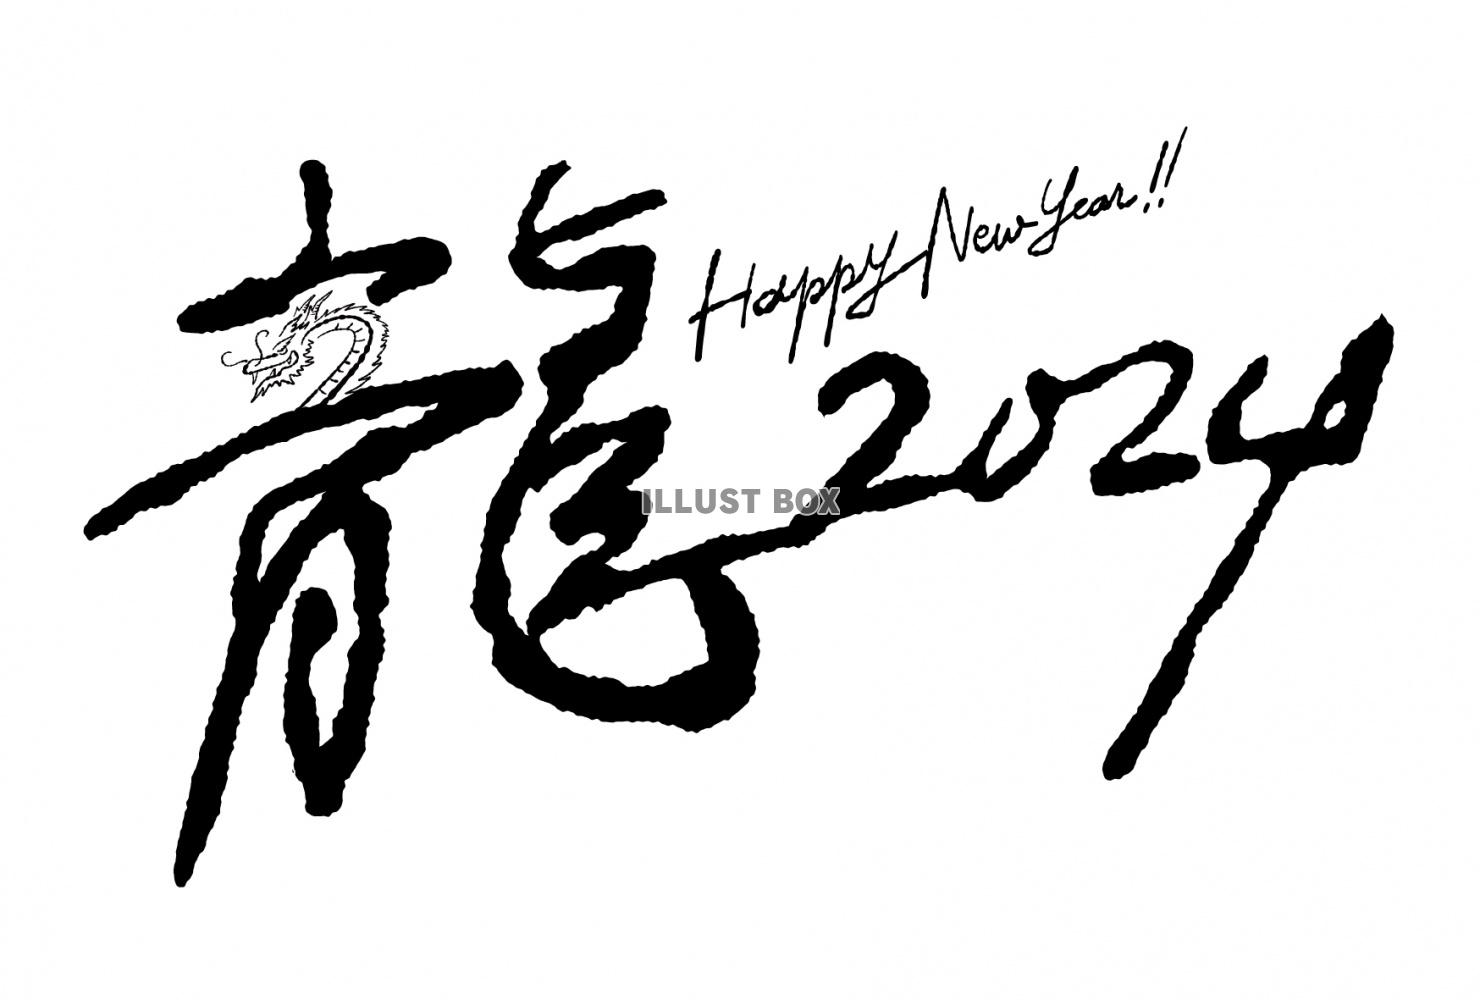 龍
Happy New Year!!
2024
ILLUST BOX